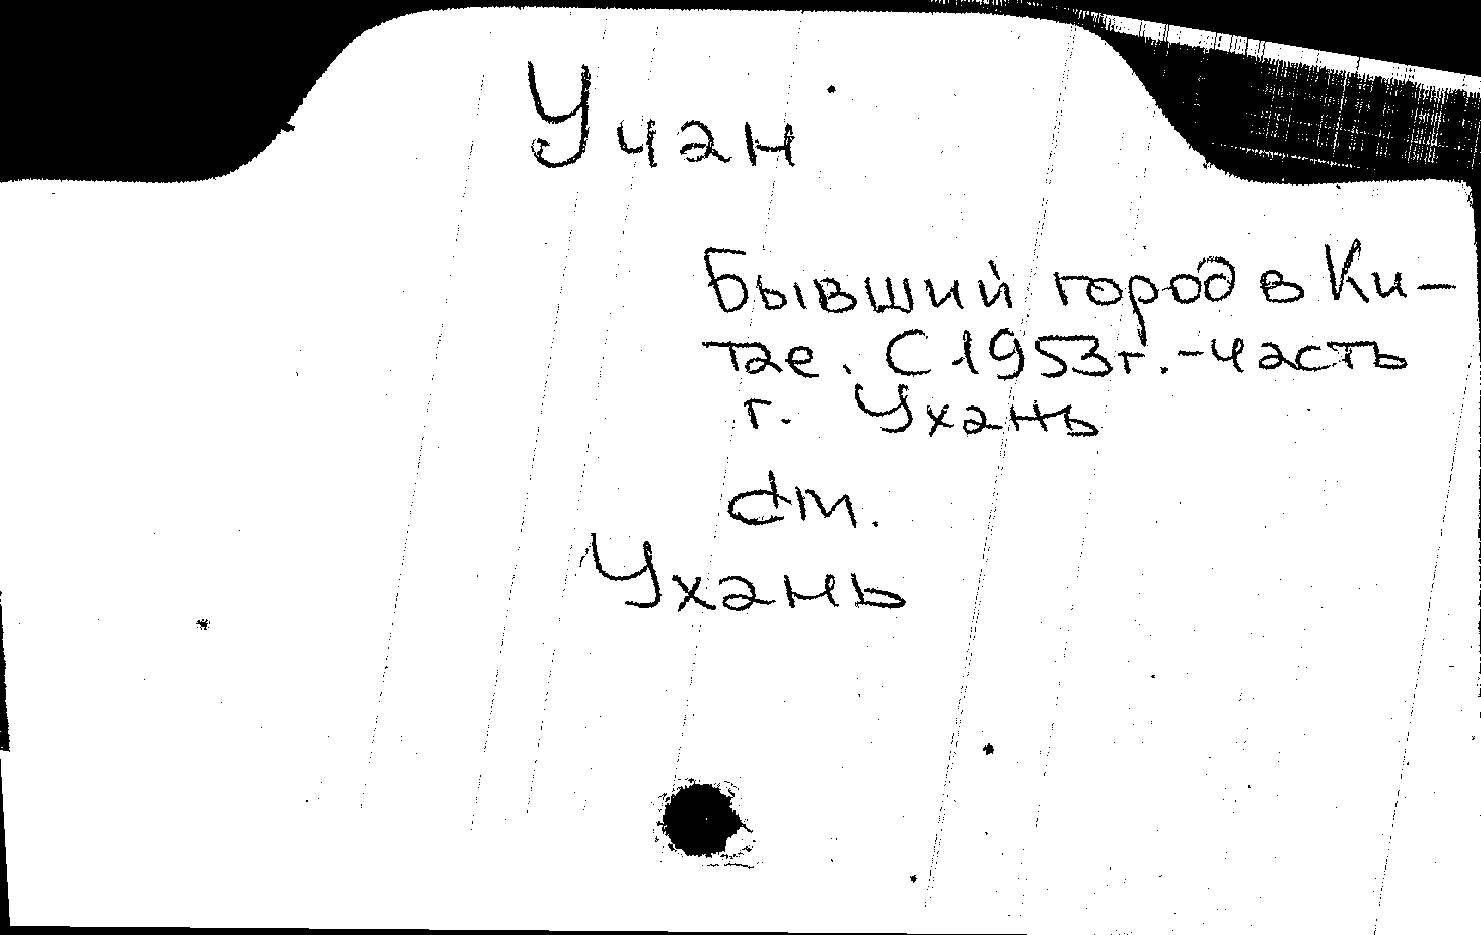 Учан
Бывший город в Ки-
тае. С 1953г.-часть
г. Ухань
см.
Ухань